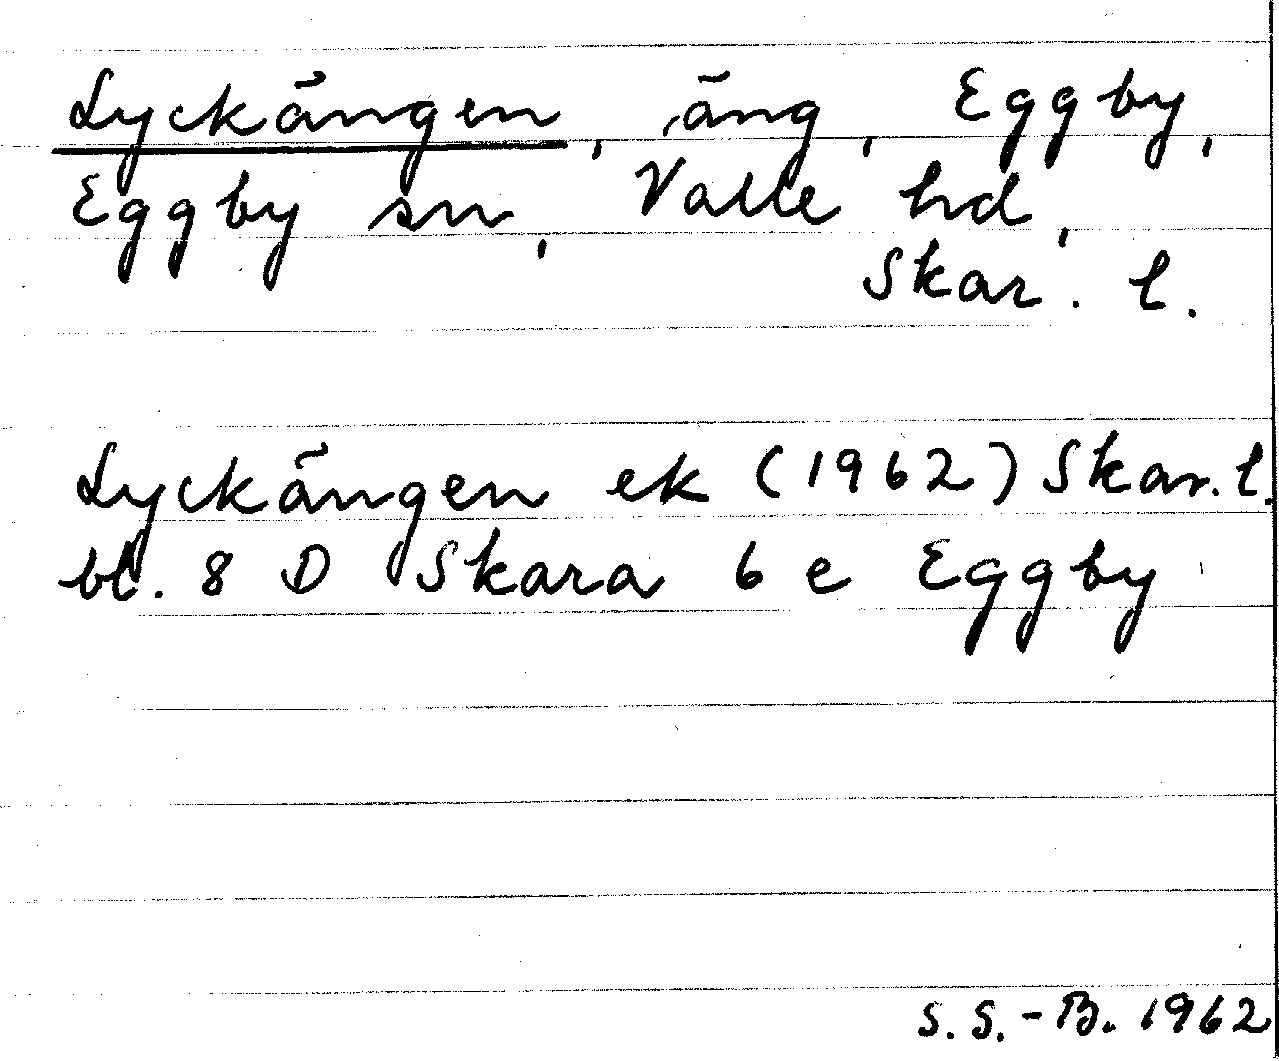 Lyckängen, äng, Eggby,
Eggby sn, Valle hd,
Skar. l.
Lyckängen ek (1962) Skar. l.
bl. 8 D Skara 6 e Eggby
S.S.-B. 1962